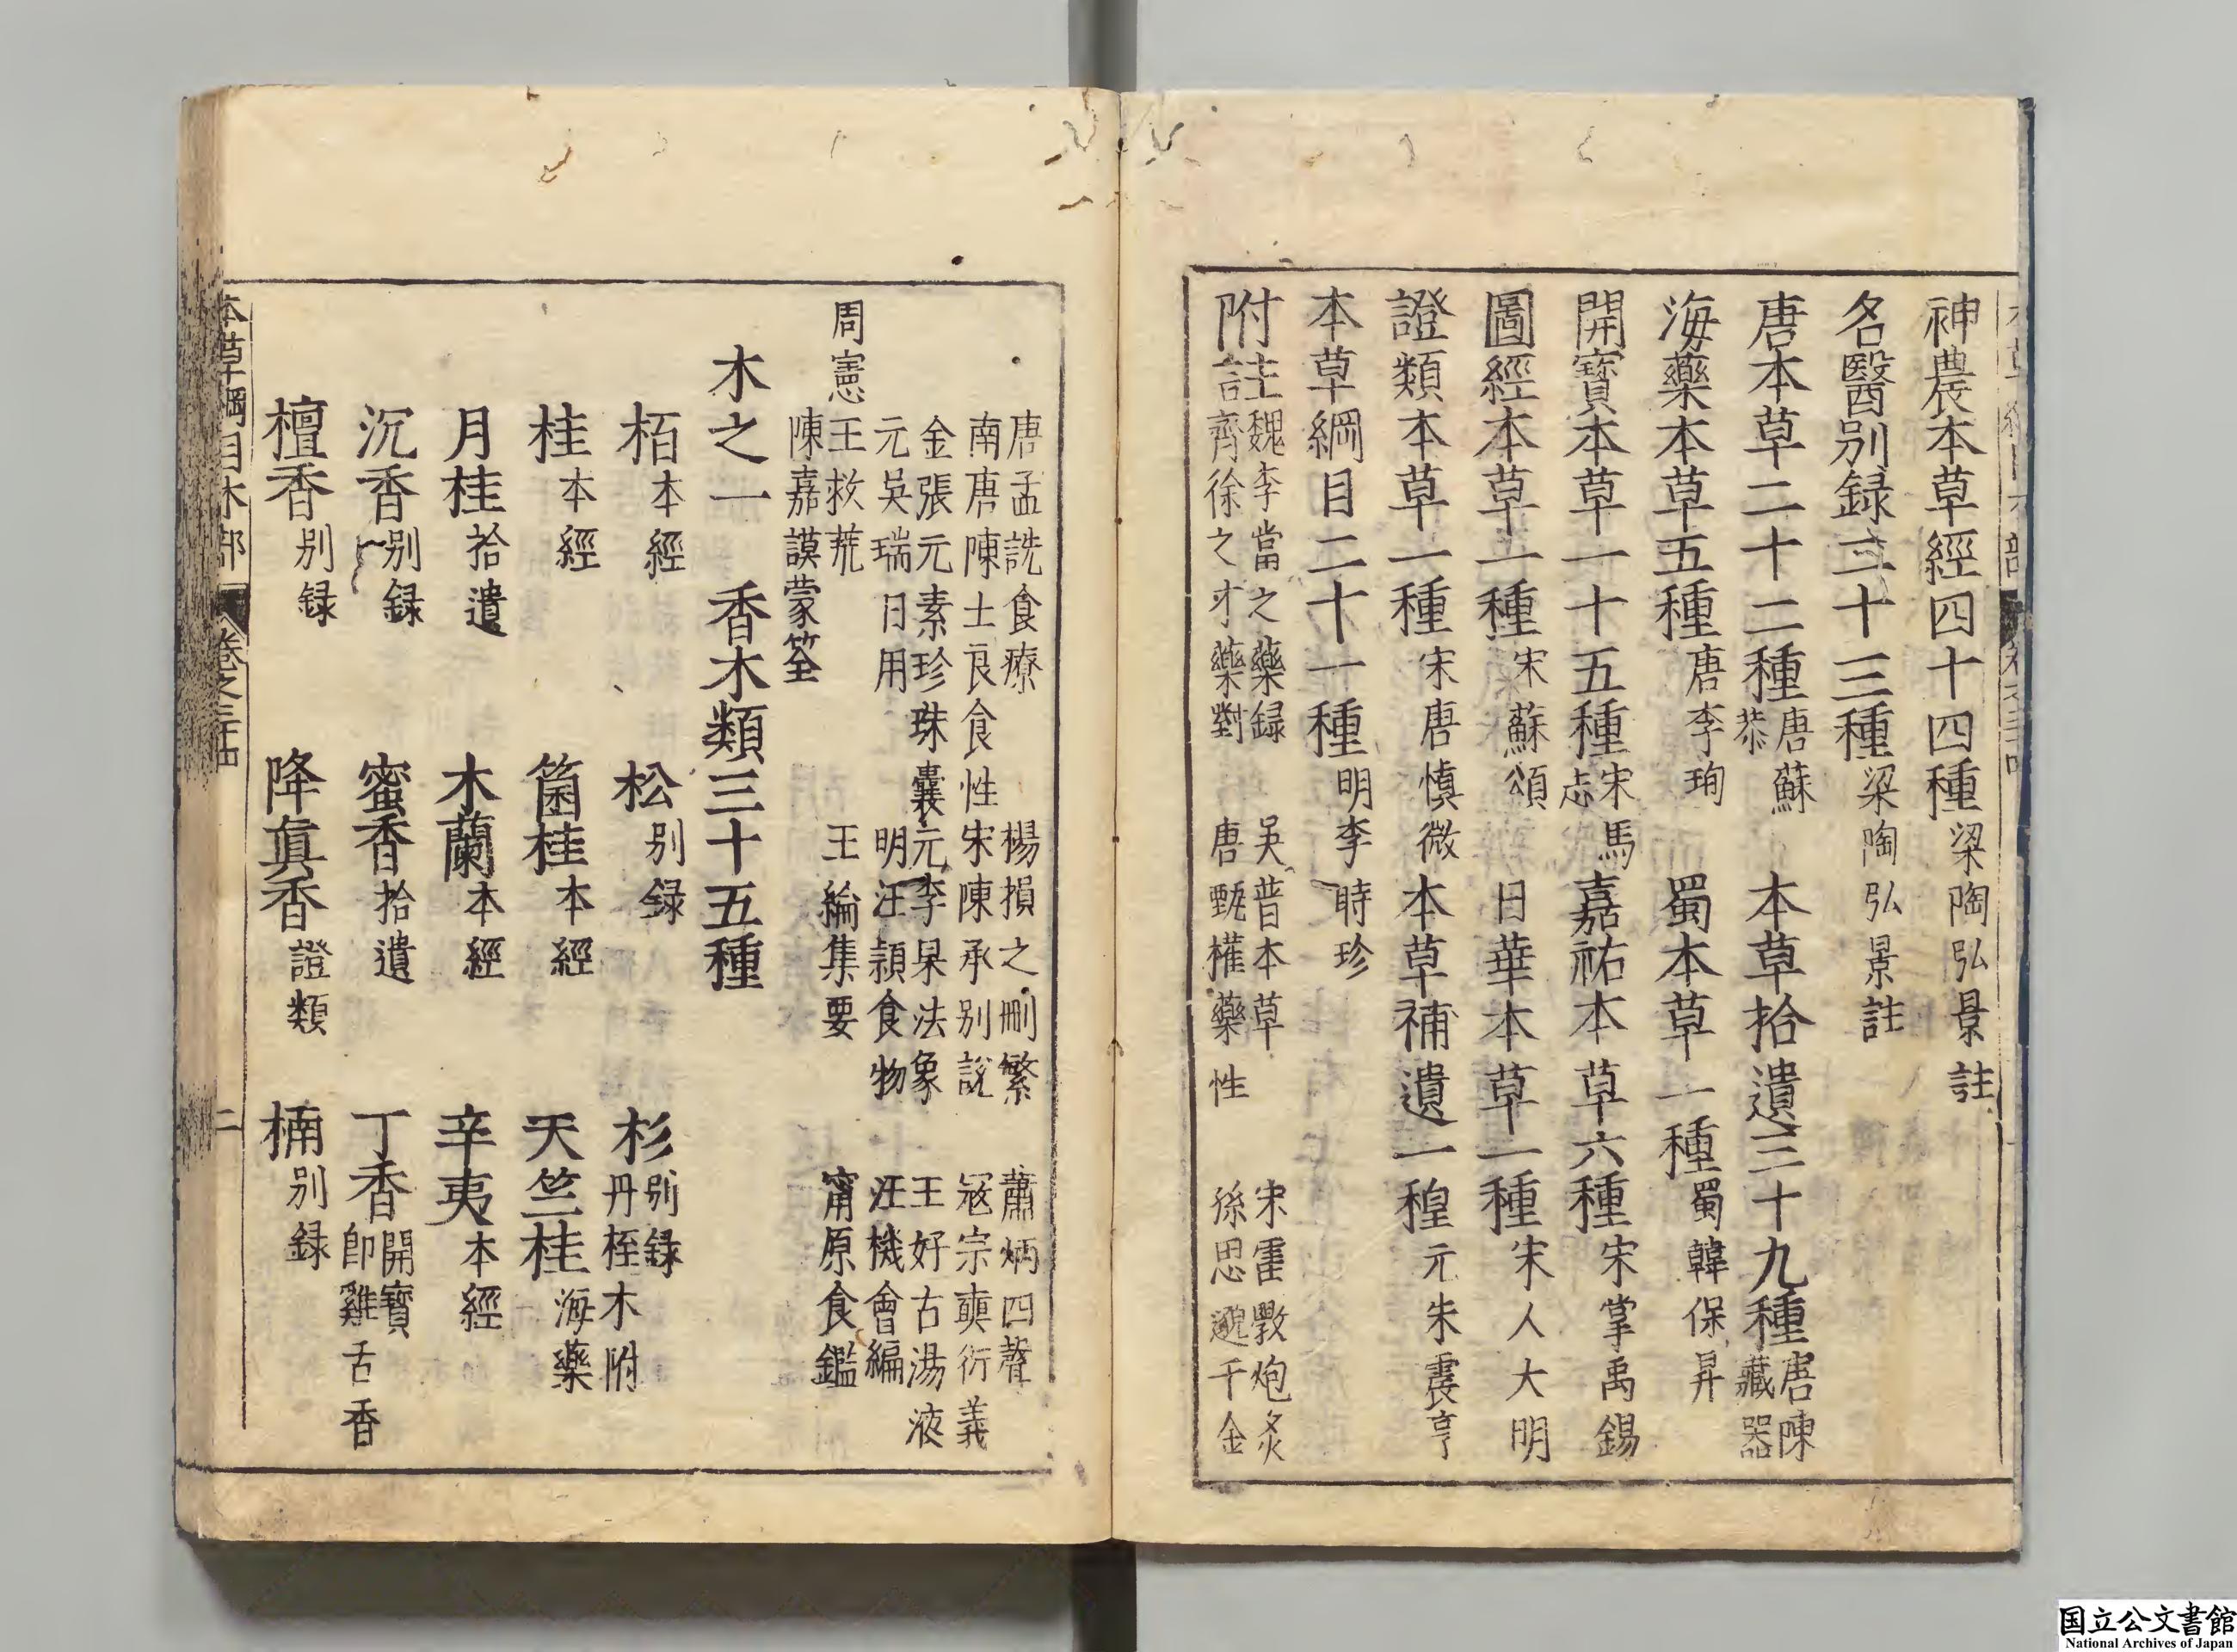 神農本草經四十四種梁陶弘景註
名醫别録三十三種梁陶弘景註
唐本草二十二種唐蘇恭　本草拾遺三十九種唐陳藏器
海藥本草五種唐李珣　蜀本草一種蜀韓保昇
開寶本草一十五種宋馬志　嘉祐本草六種宋掌禹錫
圖經本草一種宋蘇頌　日華本草一種宋人大明
證類本草一種宋唐慎微　本草補遺一種元朱震亨
本草綱目二十一種明李時珍
附註魏李當之藥録　吳普本草　宋雷斅炮炙
齊徐之才藥對　唐甄權藥性　孫思邈千金
唐孟詵食療　楊損之刪繁　蕭炳四聲
南唐陳士良食性　宋陳承别說　宼宗奭衍義
金張元素珍珠囊　元李杲法象　王好古湯液
元吳瑞日用　明汪頴食物　汪機會編
周憲王救荒　王綸集要　甯原食鑑
陳嘉謨蒙筌
木之一　香木類三十五種
栢本經　松别録　杉别録丹桎木附
桂本經　箘桂本經　天竺桂海藥
月桂拾遺　木蘭本經　辛夷本經
沉香别録　蜜香拾遺　丁香開寶即雞舌香
檀香别録　降眞香證類　楠别録
本草綱目木部　卷之三十四　二
国立公文書館
National Archives of Japan